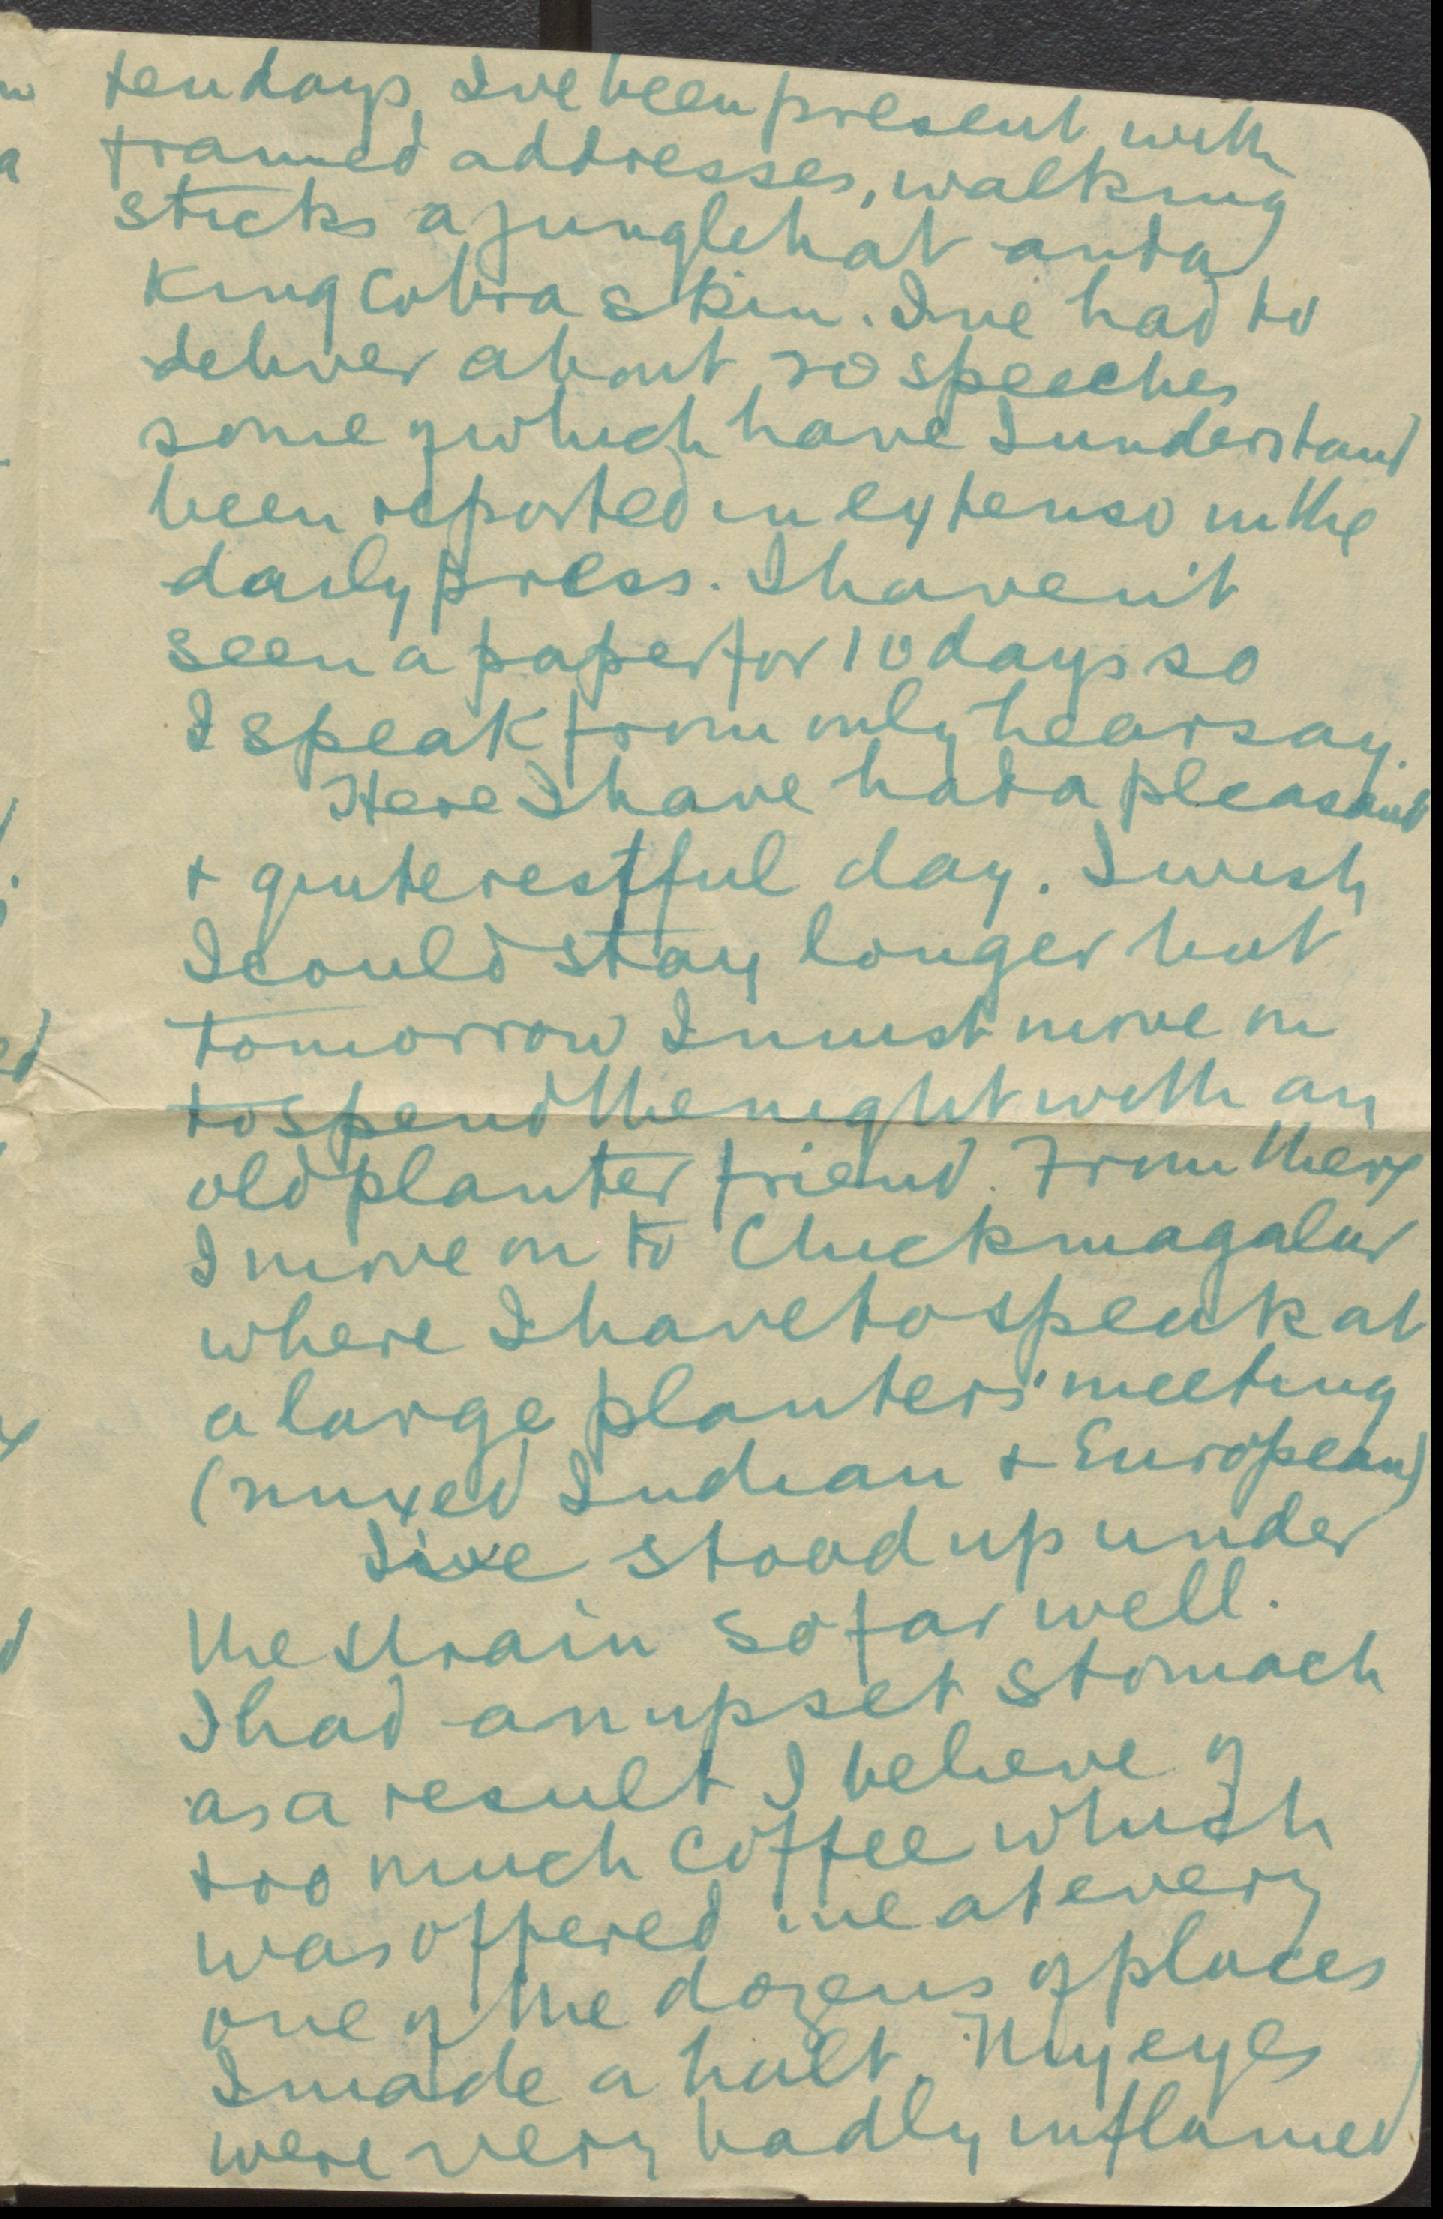 ten days, I've been present with
framed addresses, walking
sticks a jungle hat and a
King Cobra skin. I've had to
deliver about 20 speeches
some of which have I understand
been reported in extenso in the
daily press. I haven't
seen a paper for 10 days so
I speak from only hearsay.
Here I have had a pleasant
+ quite restful day. I wish
I could stay longer but
tomorrow I must move on
to spend the night with an
old planter friend. From there
I move on to Chickmagalur
where I have to speak at
a large planters' meeting
(mixed Indian + European)
I've stood up under
the strain so far well.
I had an upset stomach
as a result I believe of
too much coffee which
was offered me at every
one of the dozens of places
I made a halt. My eyes
were very badly inflamed